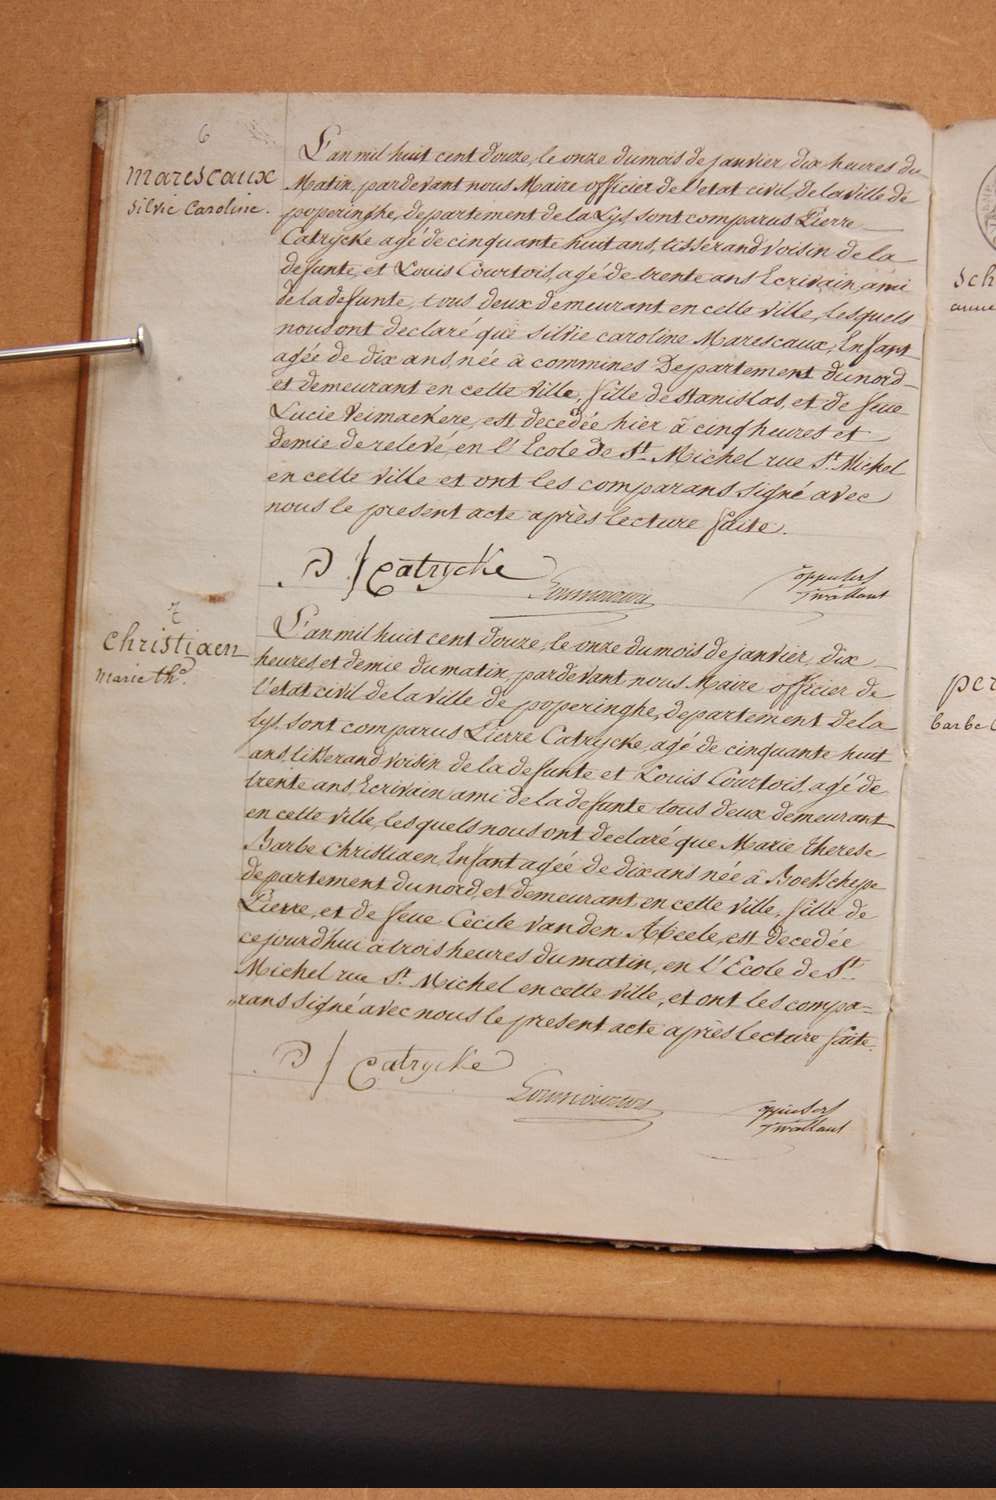 6
Marescaux
Silvie Caroline.
L'an mil huit cent douze, le onze du mois de janvier, dix heures du
Matin, pardevant nous Maire officier de l'etat civil, de la ville de
poperinghe, departement de la Lys, sont comparus Pierre
Catrycke agé de cinquante huit ans, tisserand voisin de la
defunte, et Louis Courtois, agé de trente ans Ecrivain, ami
de la defunte, tous deux demeurant en cette ville, lesquels
nous ont declaré que Silvie Caroline Marescaux, Enfant
agée de dix ans, née à commines Departement du nord
et demeurant en cette ville, fille de Stanislas, et de feue
Lucie Veimaekere, est decedée hier à cinq heures et
demie de relevé, en l'Ecole de St. Michel rue St. Michel
en cette ville et ont les comparans signé avec
nous le present acte après lecture faite.
P / Catrycke
7
Christiaen
Marie thc.
L'an mil huit cent douze, le onze du mois de janvier, dix
heures et demie du matin, pardevant nous Maire officier de
l'etat civil de la ville de poperinghe, departement de la
lys, sont comparus Pierre Catrycke, agé de cinquante huit
ans, tisserand voisin de la defunte et Louis Courtois, agé de
trente ans, Ecrivain ami de la defunte tous deux demeurant
en cette ville, lesquels nous ont declaré que Marie Therese
Barbe Christiaen, Enfant agée de dix ans née à Boeschepe
departement du nord, et demeurant en cette ville, fille de
Pierre, et de feue Cecile Vanden Abeele, est decedée
ce jourd'hui à trois heures du matin, en l'Ecole de St.
Michel rue St. Michel en cette ville, et ont les compa=
rans signé avec nous le present acte après lecture faite.
P / Catrycke
Sch
anne
per
barbe